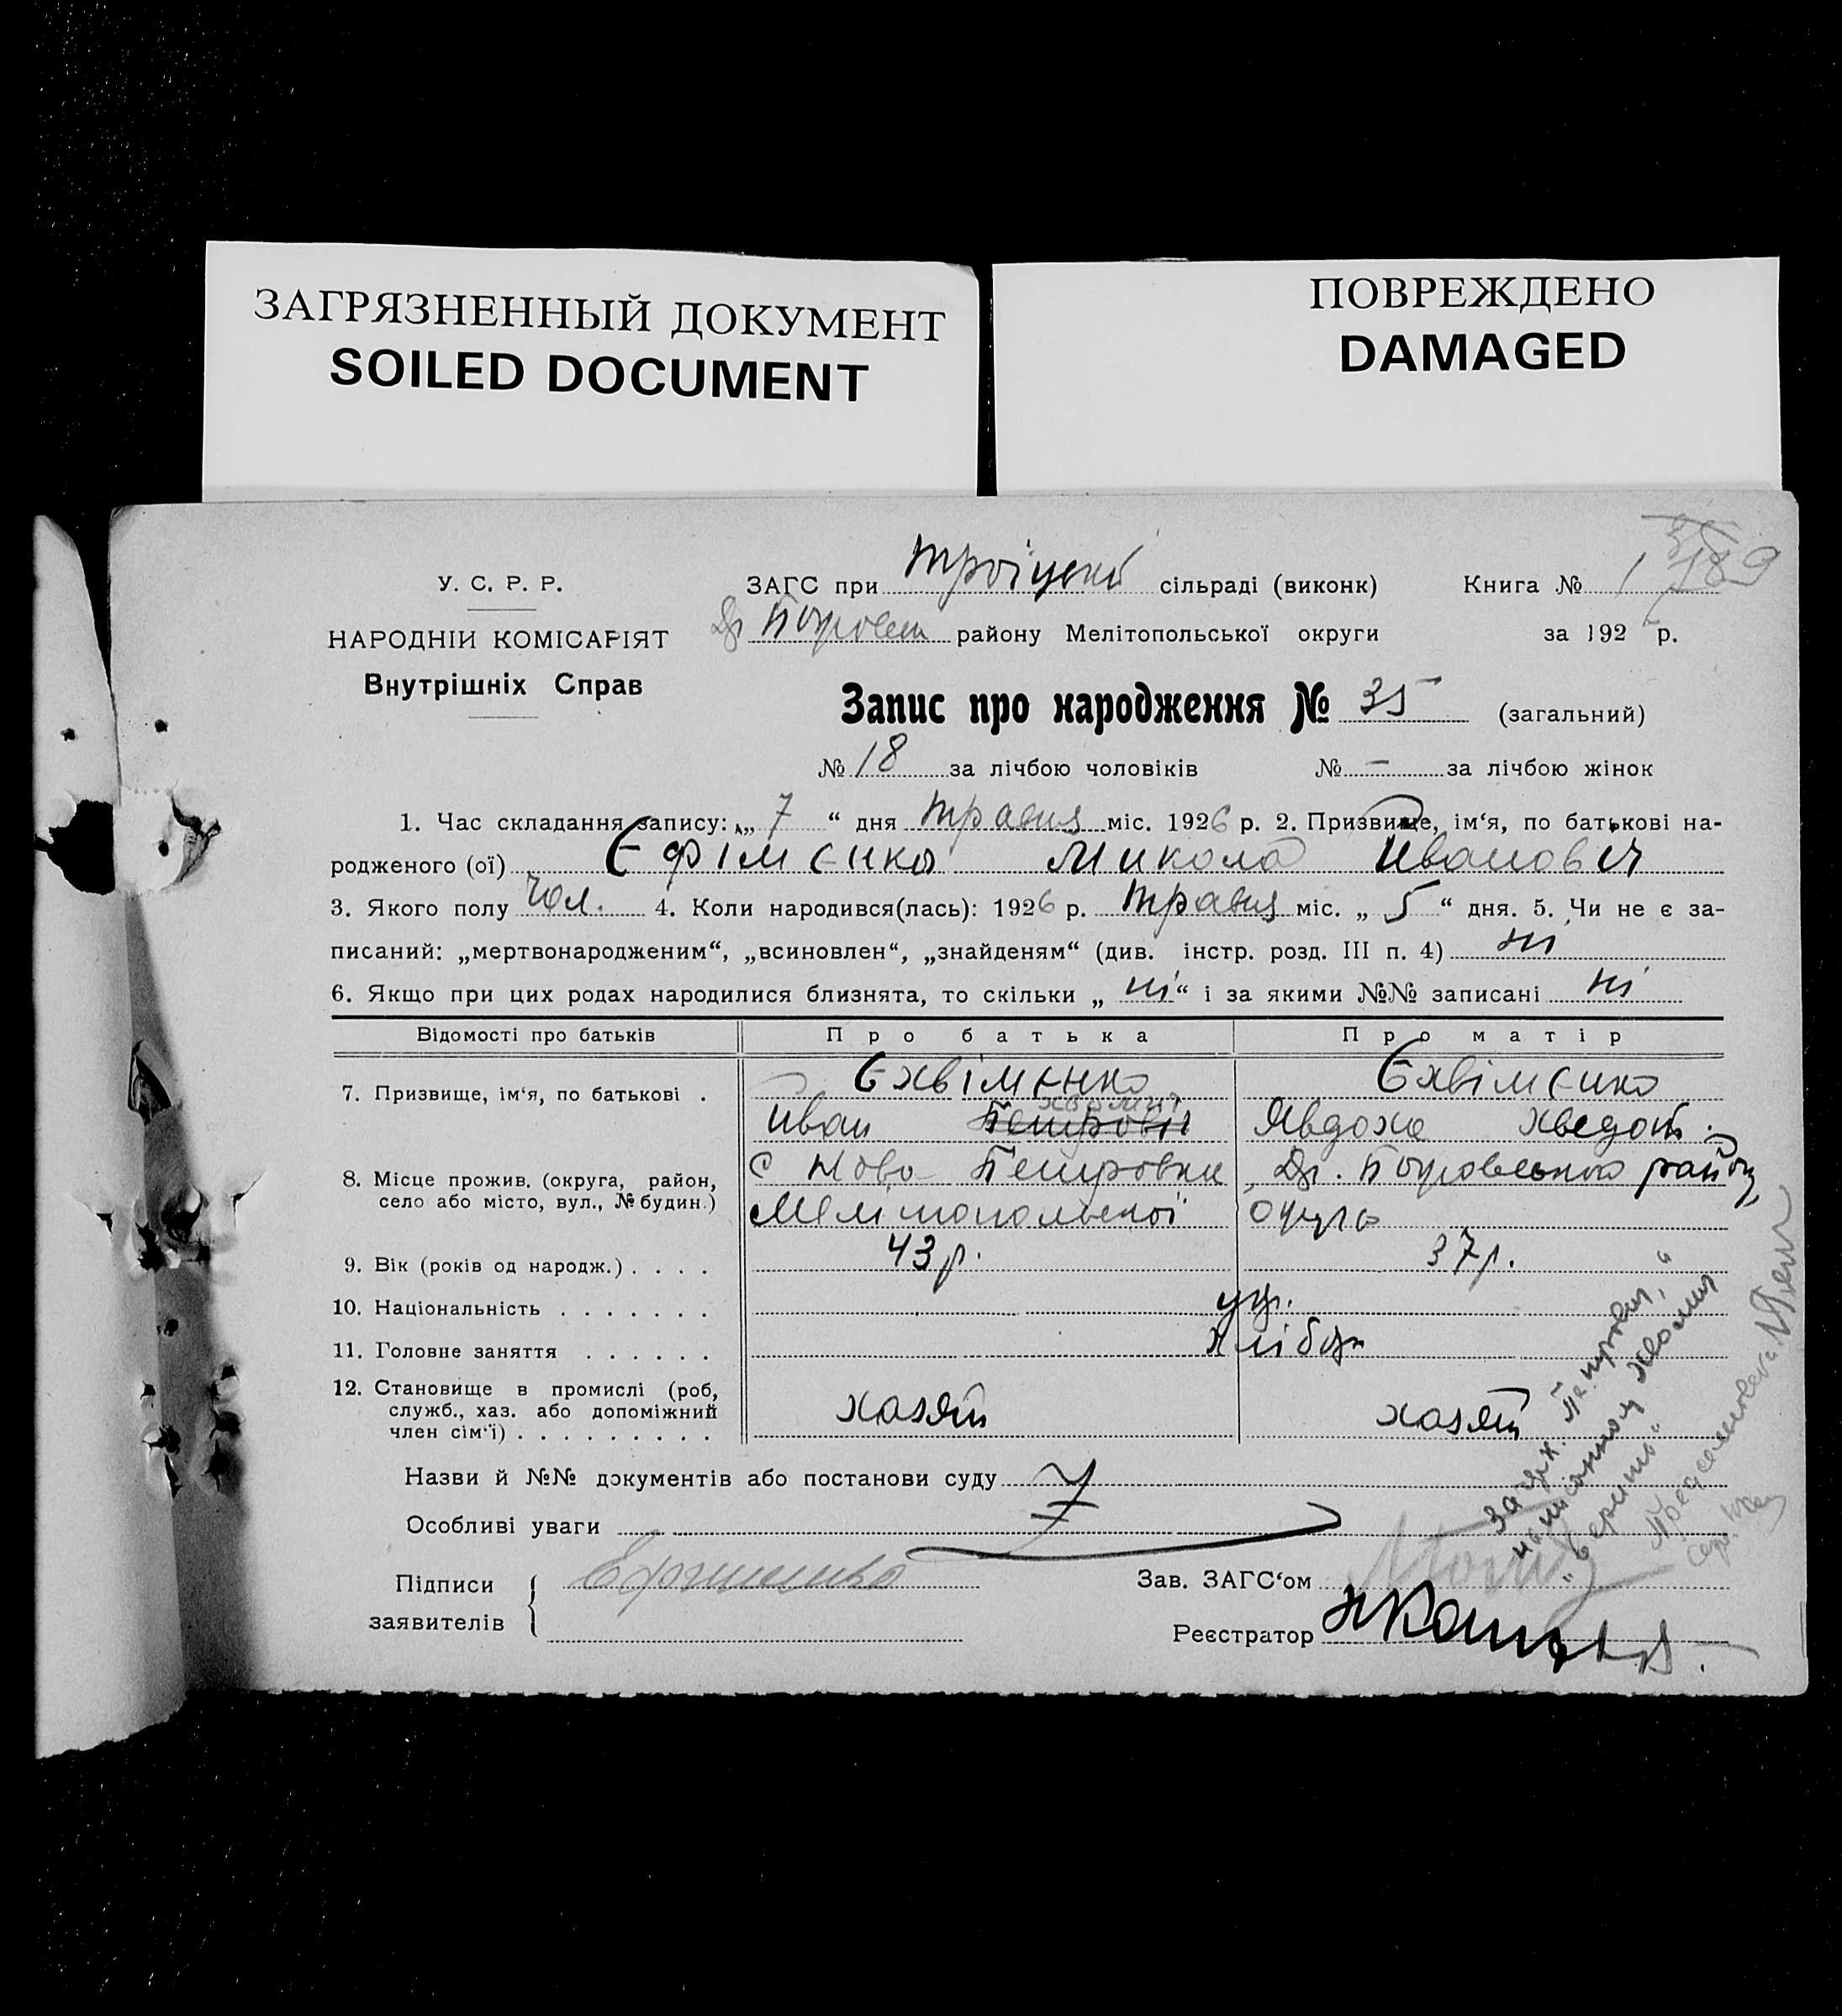 ЗАГРЯЗНЕННЫЙ ДОКУМЕНТ
SOILED DOCUMENT
ПОВРЕЖДЕНО
DAMAGED
189
У. С. Р. Р.
НАРОДНІЙ КОМІСАРІЯТ
Внутрішніх Справ
ЗАГС при Троіцькій сільраді (виконк) Книга № 1
Покровськ району Мелітопольської округи за 1926 р.
Запис про народження № 35 (загальний)
№ 18 за лічбою чоловіків № — за лічбою жінок
1. Час складання запису: „ 7 “ дня травня міс. 1926 р. 2. Призвище, ім‘я, по батькові на-
родженого (ої) Єфіменко Микола Иванович
3. Якого полу чол. 4. Коли народився(лась): 1926 р. травня міс. „ 5 “ дня. 5. Чи не є за-
писаний: „мертвонародженим“, „всиновлен“, „знайденям“ (див. інстр. розд. III п. 4) ні
6. Якщо при цих родах народилися близнята, то скільки „ ні “ і за якими №№ записані ні
Відомості про батьків Про батька Про матір
7. Призвище, ім‘я, по батькові . Єхвіменко Єхвіменко
Иван Петровіч Явдоха Хведот.
8. Місце прожив. (округа, район, село або місто, вул., № будин.) с Ново Петровки Покровського району
Мелітопольської округа
9. Вік (років од народж.) . . . . 43 р. 37 р.
10. Національність . . . . . . . укр.
11. Головне заняття . . . . . . хлібор
12. Становище в промислі (роб,
служб., хаз. або допоміжний
член сім‘ї) . . . . . . . . . хазяїн хазяїн
Назви й №№ документів або постанови суду
Особливі уваги
Підписи
заявителів
Ефименко
Зав. ЗАГС‘ом
Реєстратор